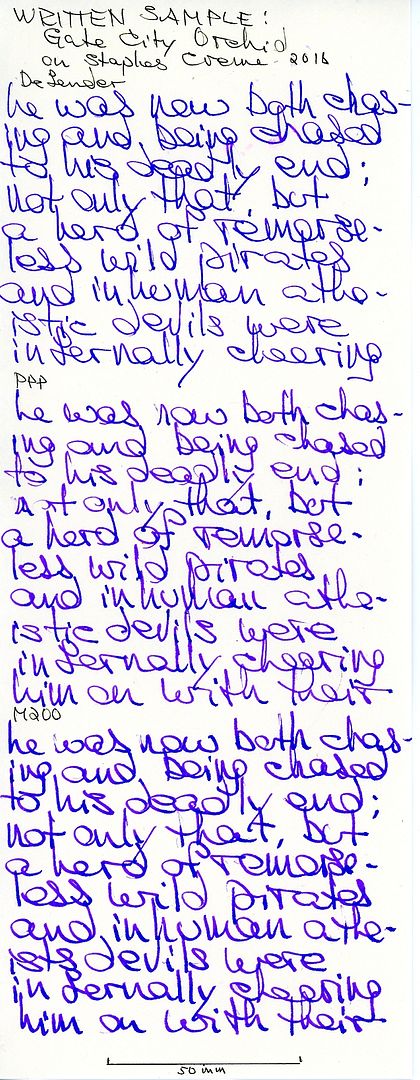 WRITTEN SAMPLE:
Gate City Orchid
on Staples Creme - 2016
Defender
he was now both chas-
ing and being chased
to his deadly end;
not only that, but
a herd of remorse-
less wild pirates
and inhuman athe-
istic devils were
infernally cheering
PPP
he was now both chas-
ing and being chased
to his deadly end;
not only that, but
a herd of remorse-
less wild pirates
and inhuman athe-
istic devils were
infernally cheering
him on with their
M200
he was now both chas-
ing and being chased
to his deadly end;
not only that, but
a herd of remorse-
less wild pirates
and inhuman athe-
ists devils were
infernally cheering
him on with their
50 mm